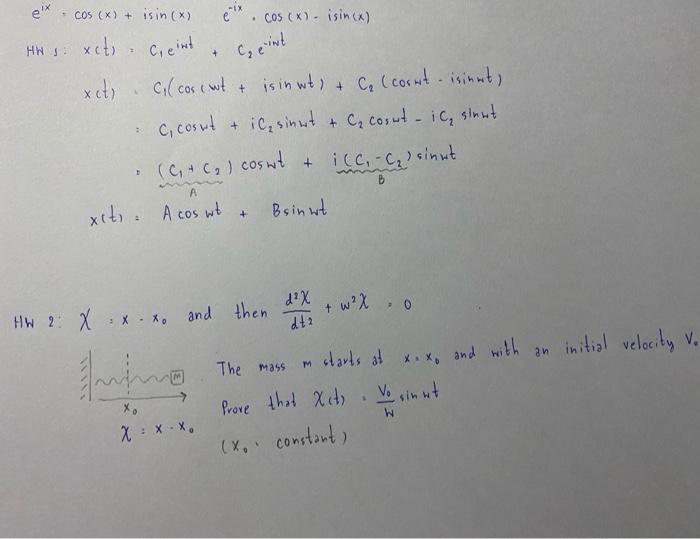 e^{ix} = cos(x) + isin(x)    e^{-ix} = cos(x) - isin(x)
HW 1: x(t) = C₁e^{iwt} + C₂e^{-iwt}
x(t) = C₁(coscwt + isinwt) + C₂(coswt - isinwt)
= C₁coswt + iC₂sinwt + C₂coswt - iC₂sinwt
= (C₁ + C₂) coswt + i(C₁ - C₂) sinwt
A    B
x(t) = A cos wt + Bsinwt
HW 2: X = x - x₀ and then d²X/dt² + w²X = 0
The mass m starts at x = x₀ and with an initial velocity V₀
m
Prove that X(t) = V₀/W sinwt
x₀
X = x - x₀
(x₀ = constant)